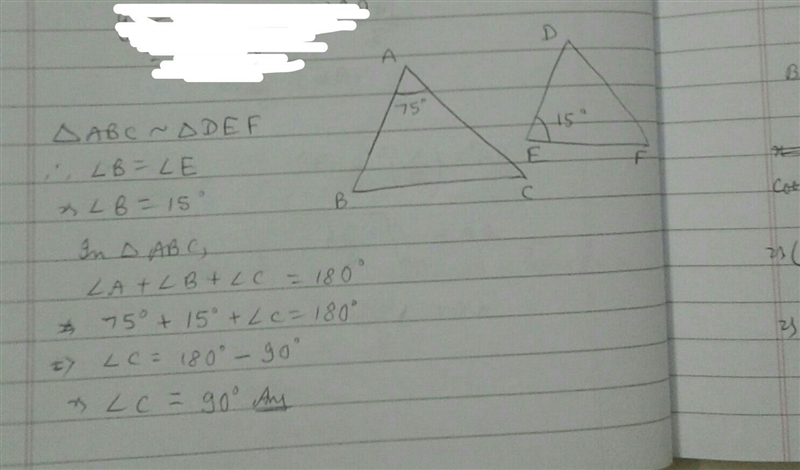 A
D
75°
15°
E
F
B
C
△ABC ~ △DEF
∴ ∠B = ∠E
⇒ ∠B = 15°
In △ABC,
∠A + ∠B + ∠C = 180°
⇒ 75° + 15° + ∠C = 180°
⇒ ∠C = 180° - 90°
⇒ ∠C = 90° Ans
B